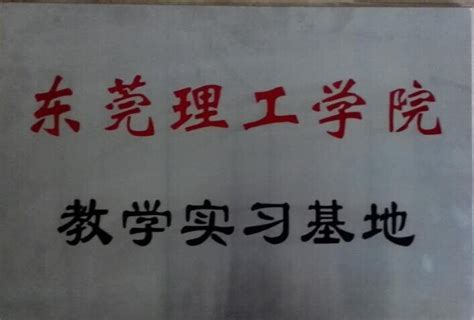 东莞理工学院
教学实习基地